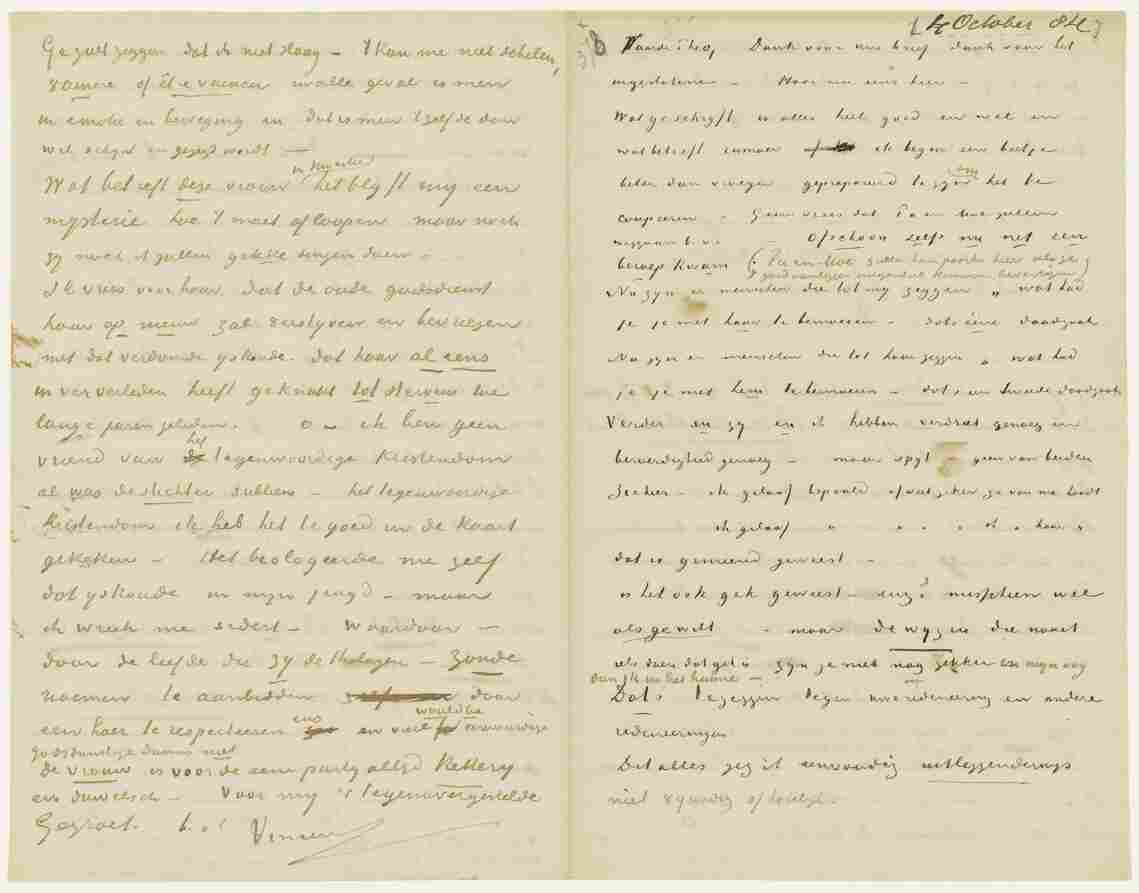 Ge zult zeggen dat ik niet slaag – 't kan me niet schelen,
vaincre of être vaincu in alle geval is men
in emotie en beweging en dat is meer 't zelfde dan
wel schijnt en gezegd wordt –
Wat betreft deze vrouw in kwestie het blijft my een
mysterie hoe 't moet afloopen maar noch
zy noch ik zullen gekke dingen doen. –
Ik vrees voor haar dat de oude godsdienst
haar op nieuw zal verstyven en bevriezen
met dat verdomde yskoude dat haar al eens
in ver verleden heeft geknakt tot stervens toe
lange jaren geleden. O – ik ben geen
vriend van het tegenwoordige Kristendom
al was de stichter subliem – het tegenwoordige
Kristendom ik heb het te goed in de kaart
gekeken – Het biologeerde me zelf
dat yskoude in myn jeugd – maar
ik wreek me sedert – Waardoor –
door de liefde die zy de theologen – zonde
noemen te aanbidden door
een hoer te respecteeren enz en veel would be eerwaardige
godsdienstige dames niet
de vrouw is voor de eene party altyd Kettery
en duivelsch – Voor my 't tegenovergestelde
Gegroet. b. à t Vincent
[4 October 84]
378 Waarde Theo, Dank voor uw brief dank voor het
ingeslotene – Hoor nu eens hier –
Wat ge schryft is alles heel goed en wel en
wat betreft ik begon een beetje
beter dan vroeger geprepareerd te zyn om het te
couperen – Geen vrees dat Pa en Moe zullen
weggaan b.v. – Ofschoon zelfs nu net een
beroep kwam (: Pa en Moe zullen hun positie hier als zy
't goed aanleggen integendeel kunnen bevestigen)
Nu zyn er menschen die tot my zeggen „wat had
je je met haar te bemoeien – dat's één daadzaak
Nu zyn er menschen die tot haar zeggen „wat had
je je met hem te bemoeien – dat's een tweede daadzaak
Verder en zy en ik hebben verdriet genoeg en
beroerdigheid genoeg – maar spyt – geen van beiden
Ziehier – ik geloof bepaald of wel zeker ze van me houdt
ik geloof „ „ „ „ ik „ haar „
dat is gemeend geweest –
is het ook gek geweest – enz? misschien wel
als ge wilt – maar de wyzen die nooit
iets doen dat gek is zyn ze niet nog gekker in myn oog
dan ik in het hunne –
Dat's te zeggen tegen uwe redeneering en andere
redeneeringen
Dit alles zeg ik eenvoudig uitleggenderwys
niet vyandig of hatelyk.